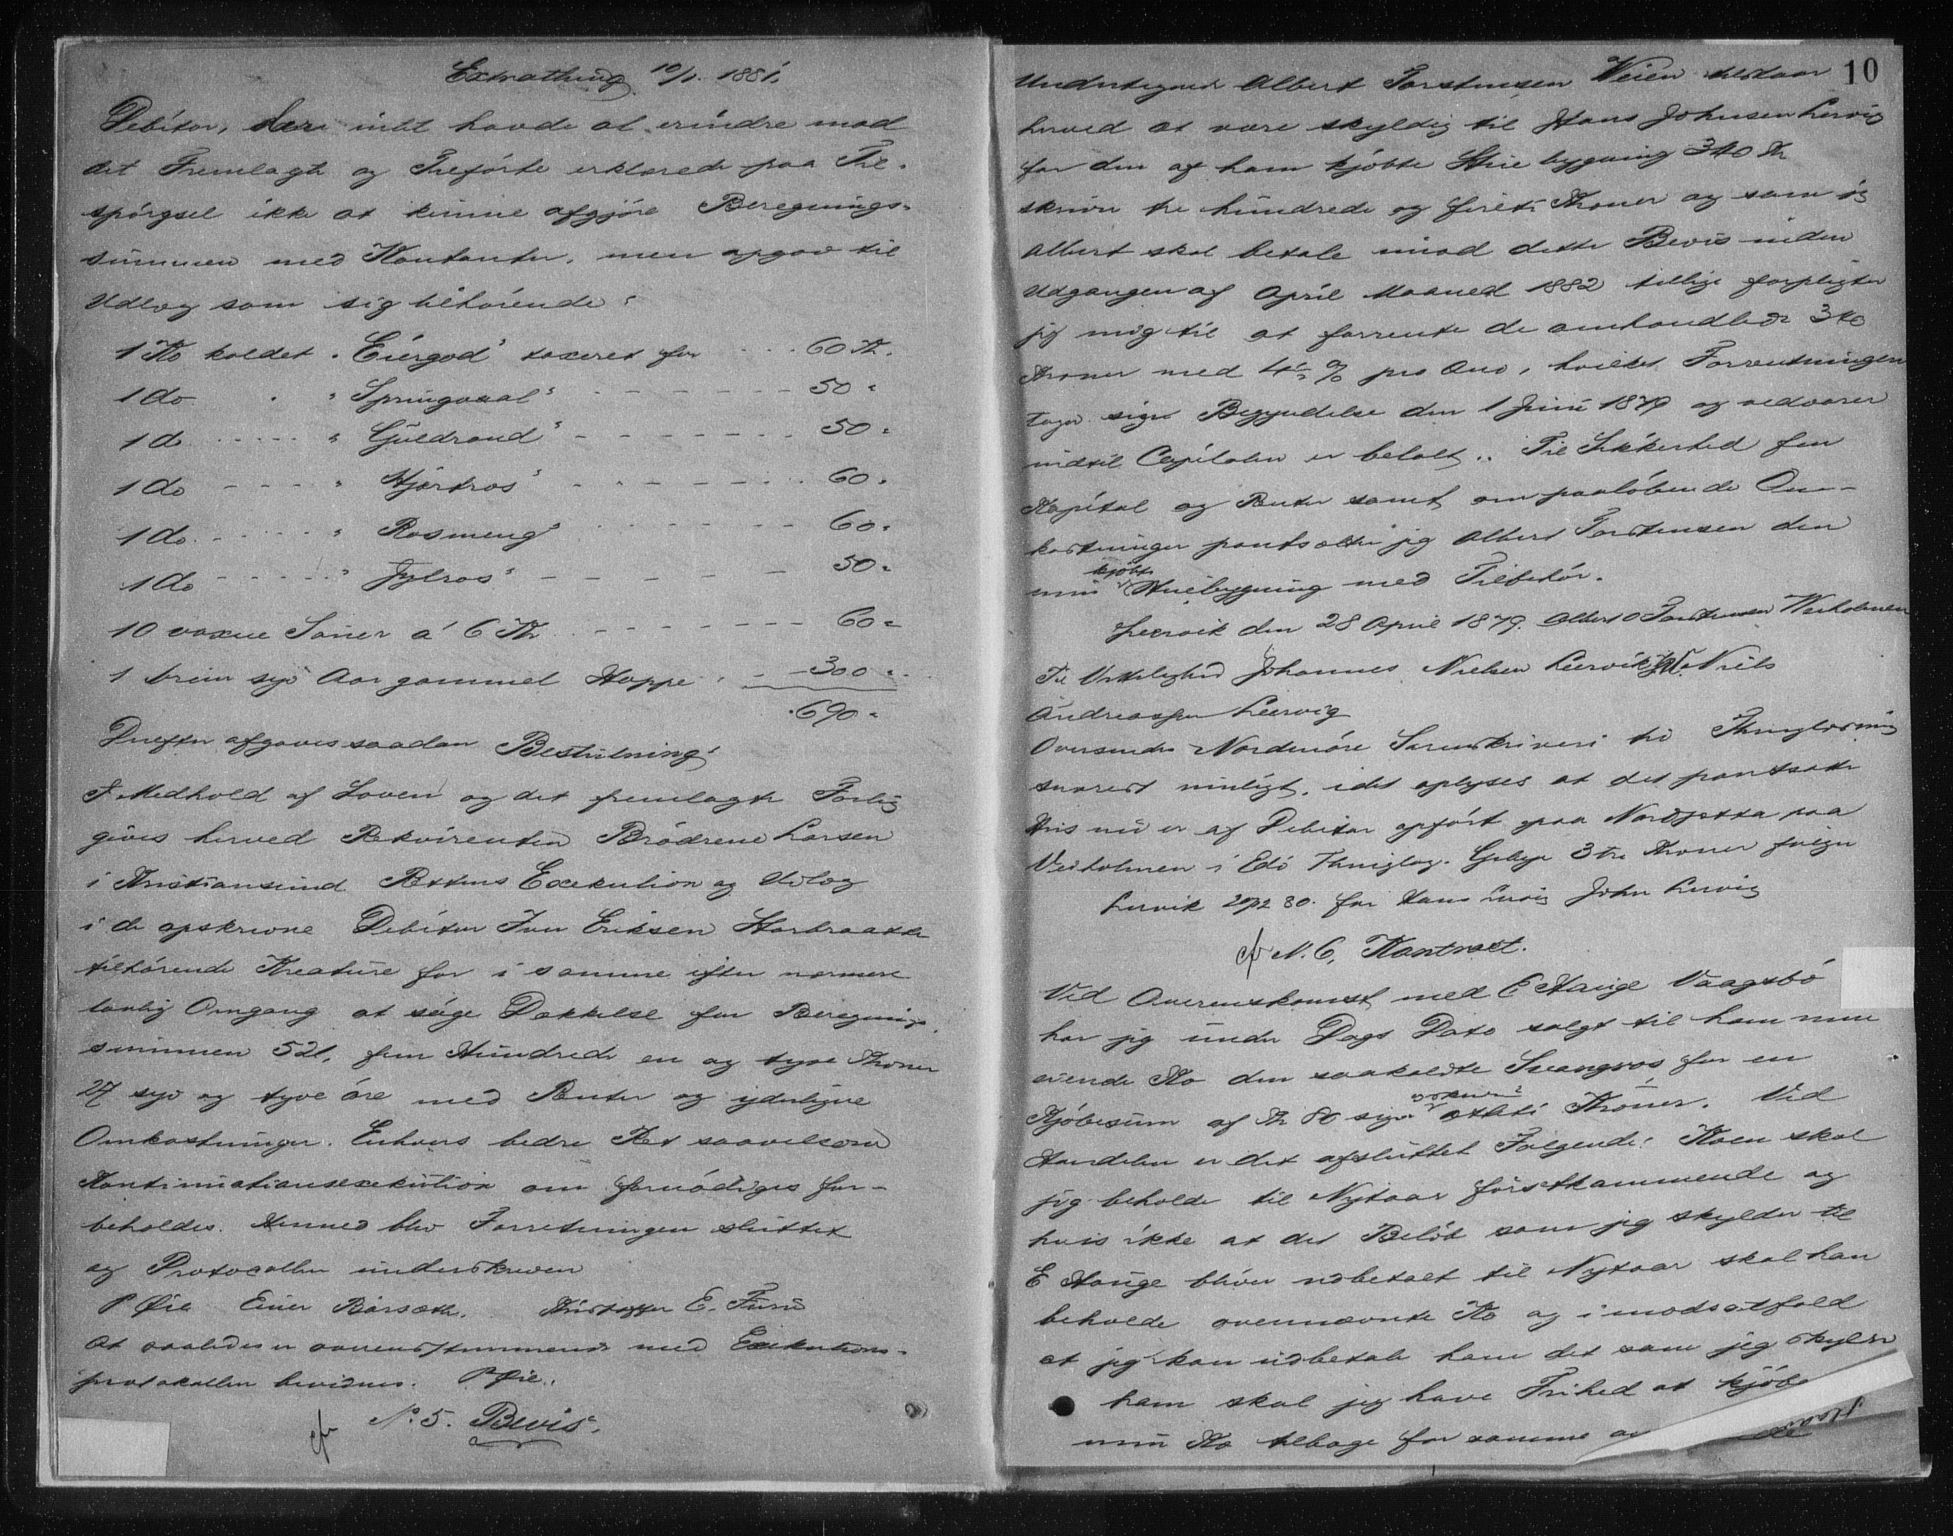 Extrathing 10/1. 1881.
Debitor, der intet havde at erindre mod
det Fremlagte og Treførte erklærede paa Til-
spørgsel ikke at kunne afgjøre Beregnings-
summen med Kontanter, men opgav til
Udlæg som sig tilhørende:
1 Ko kaldet "Eiergod" taxeret for 60 Kr.
1 do " "Springoxal" 50 "
1 do " "Guldrand" 50 "
1 do " "Hjertros" 60 "
1 do " "Rosmeng" 60 "
1 do " "Fylros" 50 "
10 voxne Sauer á 6 Kr 60 "
1 brun syv Aar gammel Hoppe 300 "
690 "
Derefter afgaves saadan Beslutning:
I Medhold af Loven og det fremlagte Forlig
gives herved Rekvirenten Brødrene Larsen
i Kristiansund Rettens Exekution og Udlæg
i de opskrevne Debitor Iver Eriksen
tilhørende Kreature for i samme efter nærmere
lovlig Omgang at søge Dækkelse for Beregnings-
summen 521, fem Hundrede en og tyve Kroner
27 syv og tyve øre med Renter og yderligere
Omkostninger. Enhvers bedre Ret saavelsom
Kontinuationsexekution om fornødiges for-
beholdes. Hermed blev Forretningen sluttet
og Protocollen underskreven
P Øie Einer Børsæth. Kristoffer E. Furu
At saaledes er overensstemmende med Exekutions-
protokollen bevidnes. P Øie.
cfr No 5. Bevis.
10
Undertegnede Albert Torstensen Veien tilstaar
herved at være skyldig til Hans Johnsen Lervig
for den af ham kjøbte Huebygning 340 Kr
skriver tre hundrede og firti Kroner og som jeg
Albert skal betale mod dette Bevis inden
Udgangen af April Maaned 1882 tillige forpligter
jeg mig til at forrente de omhandlede 340
Kroner med 4½ % pro Ano, hvilket Forrentningen
tager sigen Begyndelse den 1 Juni 1879 og vedvarer
indtil Capitalen er betalt. Til Sikkerhed for
Kapital og Renter samt om paaløbende Om-
kostninger pantsætter jeg Albert Torstensen den
min kjøbte Huebygning med Tilbehør.
Leervik den 28 April 1879. Albert O Torstensen Veiholmen
Til Vitterlighed Johannes Nielsen Leervik Nils
Andreassen Leervig
Oversendes Nordmøre Sorenskriveri til Thinglæsning
snarest muligt, idet oplyses at det pantsatte
Hus nu er af Debitor opført paa Nordjetta paa
Veiholmen i Edø Thinglag. Gebyr 3 tre Kroner følger
Lervik 29/12 80. for Hans Lervig John Lervig
cfr N. 6. Kontract.
Ved Overenskomst med E Hauge Vaagsbø
har jeg under Dags Dato solgt til ham min
eiende Ko den saakaldte Svangros for en
Kjøbesum af Kr 80 siger otteti Kroner. Ved
Handelen er det afsluttet Følgende: Koen skal
jeg beholde til Nytaar førstkommende og
hvis ikke at det Beløb som jeg skylder til
E Hauge bliver udbetalt til Nytaar skal han
beholde ovennævnte Ko og i modsatfald
at jeg kan udbetale ham det som jeg skylder
ham skal jeg have Frihed at kjøbe
min Ko tilbage for samme